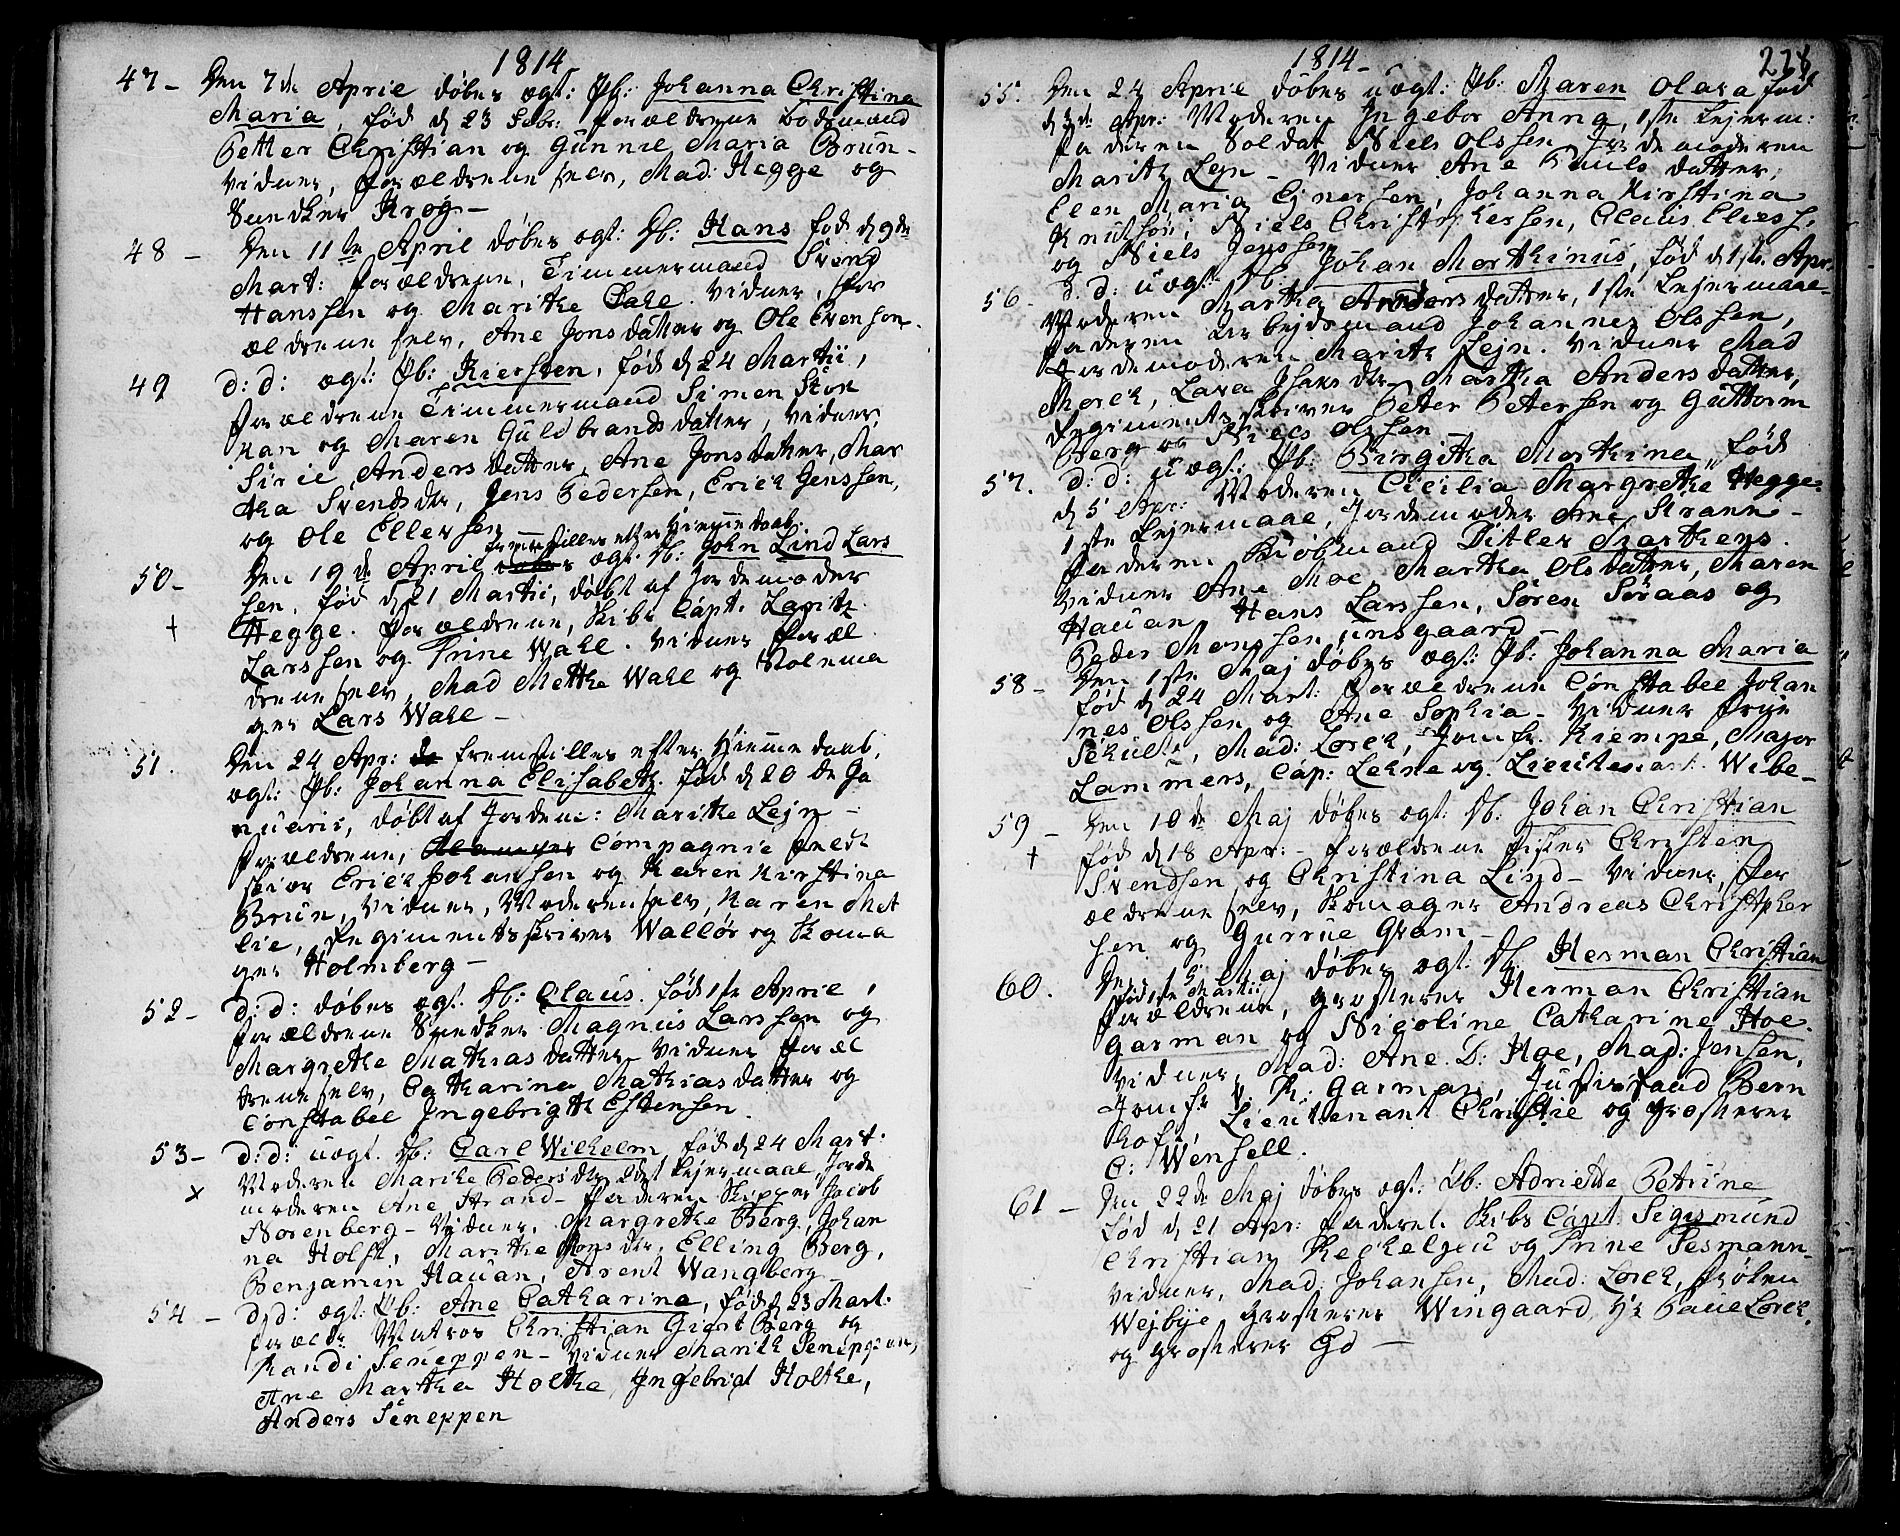 1814
47 - Den 7de April døbes ægt: Pb: Johanna Christina
Maria, fød d 23 Febr: Forældrene Bodsmand
Petter Christian og Gunnil Maria Brun -
Vidner, Forældrene selv, Mad: Hegge og
Snedker Krog -
48 - Den 11te April døbes ægt: Db: Hans fød d 9de
Mart: Forældrene, Timmermand Svend
Hanssen og Marithe Dahl. Vidner, For
ældrene selv, Ane Jonsdatter og Ole Evensen.
49 d: d: ægt: Pb: Kiersten, fød d 24 Martii,
Forældrene Timmermand Simen Stok
kan og Maren Guldbrandsdatter, Vidner,
Siril Andersdatter, Ane Jonsdatter, Mar
tha Svendsdr, Jens Pedersen, Erick Jenssen,
og Ole Ellersen
fremstilles efter Hiemmedaab.
50 - Den 19de April ægt: Db: John Lind Lars
sen, fød d 21 Martii, døbt af Jordemoder
+ Hegge. Forældrene, Skibs Capt. Lauritz
Larssen og Trine Wahl. Vidner Foræl
drene selv, Mad Mette Wahl og Stolema
ger Lars Wahl -
51. Den 24 Apr: fremstilles efter Hiemmedaab,
ægt: Pb: Johanna Elisabeth. fød d 20de Ja
nuarii, døbt af Jordem: Marithe Lejn -
Forældrene, Compagnie Feldt
skiær Erick Johanssen og Karen Kirstina
Brun, Vidner, Moderen selv, Karen Met
lie, Regimentsskriver Wallør og Skoma
ger Holmberg -
52 - d: d: døbes ægt. Db: Claus. fød 1te April,
Forældrene Snedker Magnus Larssen og
Margrethe Mathiasdatter Vidner Foræl
drene selv, Catharina Mathiasdatter og
Constabel Ingebrigt Estensen.
53 - d: d: uægt. Db: Carl Wilhelm, fød d 24 Mart:
x Moderen Marithe Pedersdtr 2det Lejermaal, Jorde
moderen Ane Strand - Faderen Skipper Jacob
Norenberg - Vidner, Margrethe Berg, Johan
na Holst, Marithe Monsdtr, Elling Berg,
Benjamin Hauan, Arent Wangberg
54 - d: d: ægt: Pb: Ane Catharina, fød d 23 Mart:
Foræld: Matros Christian Giert Berg og
Randi Seneppen - Vidner Marith Seneppen,
Ane Martha Holthe, Ingebrigt Holthe,
Anders Seneppen
1814 -
228
55. Den 24 April døbes uægt: Pb: Maren Olava fød
d 3de Apr: Moderen Ingebor Anna, 1ste Lejerm:
Faderen Soldat Niels Olssen Jordemoderen
Marith Lejn - Vidner Ane Pauls datter,
Elen Maria Ejnersen, Johanna Kirstina
Knutson, Niels Christophersen, Claus Eliess.
og Niels Jenssen
56 - d: d: uægt: Db. Johan Morthinus, fød d 1ste Apr.
Moderen Martha Andersdatter, 1ste Lejermaal
Faderen Arbejdsmand Johannes Olssen,
Jordemoderen Marith Lejn. Vidner Mad
Morck, Lava Isaksdtr. Martha Andersdatter,
Regimentsskriver Peter Petersen og Guttorm
Berg og Niels Olssen -
57. d: d: uægt: Pb: Birgitha Morthina, fød
d 5 Apr: Moderen Cicilia Margrethe Hegge
1ste Lejermaal, Jordemoder Ane Strann -
Faderen Kiøbmand Ditlev Marthens.
Vidner Ane Moe, Martha Olsdatter, Maren
Hauan, Hans Larssen, Søren Søraas og
Peder Monssen unsgaard -
58 - Den 1ste Maj døbes ægt: Pb: Johanna Maria
fød d 24 Mart: Forældrene Constabel Johan
nes Olssen og Ane Sophia - Vidner Frue
Schult, Mad: Lorck, Jomfr. Kiempe, Major
Lammers, Cap: Lehne og Lieutenant Wibe -
59 - Den 10de Maj døbes ægt: Db. Johan Christian
+ fød d 18 Apr: - Forældrene Fisker Christen
Svendsen og Christina Lind - Vidner, For
ældrene selv, Skomager Andreas Christopher
sen og Gurrue Gram -
60. Den 15 Maj døbes ægt: Db. Herman Christian
fød 1te Martii
Forældrene, Grosserer Herman Christian
Garman og Nicoline Catharine Hoe.
Vidner, Mad: Ane D: Hoe, Mad: Jensen,
Jomfr V. K. Garman, Justisraad Bern
hoft, Lieutenant Christie og Grosserer
C: Wensell.
61 - Den 22de Maj døbes ægt: Pb: Adriette Petrine
fød d 21 Apr: Faderet. Skibs Capt. Sigismund
Christian Recheljeu og Trine Sesmann -
Vidner, Mad: Johansen, Mad: Lorck, Frøken
Wejbye Grosserer Wingaard, Hr Paul Lorck,
og Grosserer Gd -